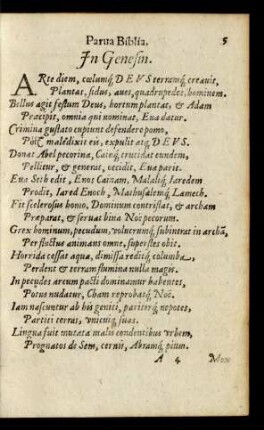 Parua Biblia. 5
In Genesin.
ARte diem, cœlumq́; DEVS terramq́; creauit,
Plantas, sidus, aues, quadrupedes, hominem.
Bellus agit festum Deus, hortum plantat, & Adam
Præcipit, omnia qui nominat, Eua datur.
Crimina gustato cupiunt defendere pomo,
Póst maledixit eis, expulit atq́; DEVS.
Donat Abel pecorina, Cainq́; trucidat eundem,
Pellitur, & generat, occidit, Eua parit.
Eua Seth edit, Enos Cainam, Malaliq́; Iaredem
Prodit, Iared Enoch, Mathusalemq́; Lamech.
Fit scelerosus homo, Dominum contristat, & archam
Præparat, & seruat bina Noi pecorum.
Grex hominum, pecudum, volucrumq́; subintrat in archā,
Per fluctus animans omne, superstes obit.
Horrida cessat aqua, dimissa rediitq́; columba,
Perdent & terram flumina nulla magis.
In pecudes arcum pacti dominantur habentes,
Potus nudatur, Cham reprobatq́; Noë.
Iam nascuntur ab his geniti, pariterq́; nepotes,
Partiti terras, vnicuiq́; suas.
Lingua fuit mutata malis condentibus vrbem,
Prognatos de Sem, cernis, Abramq́; pium.
A 4 Mox